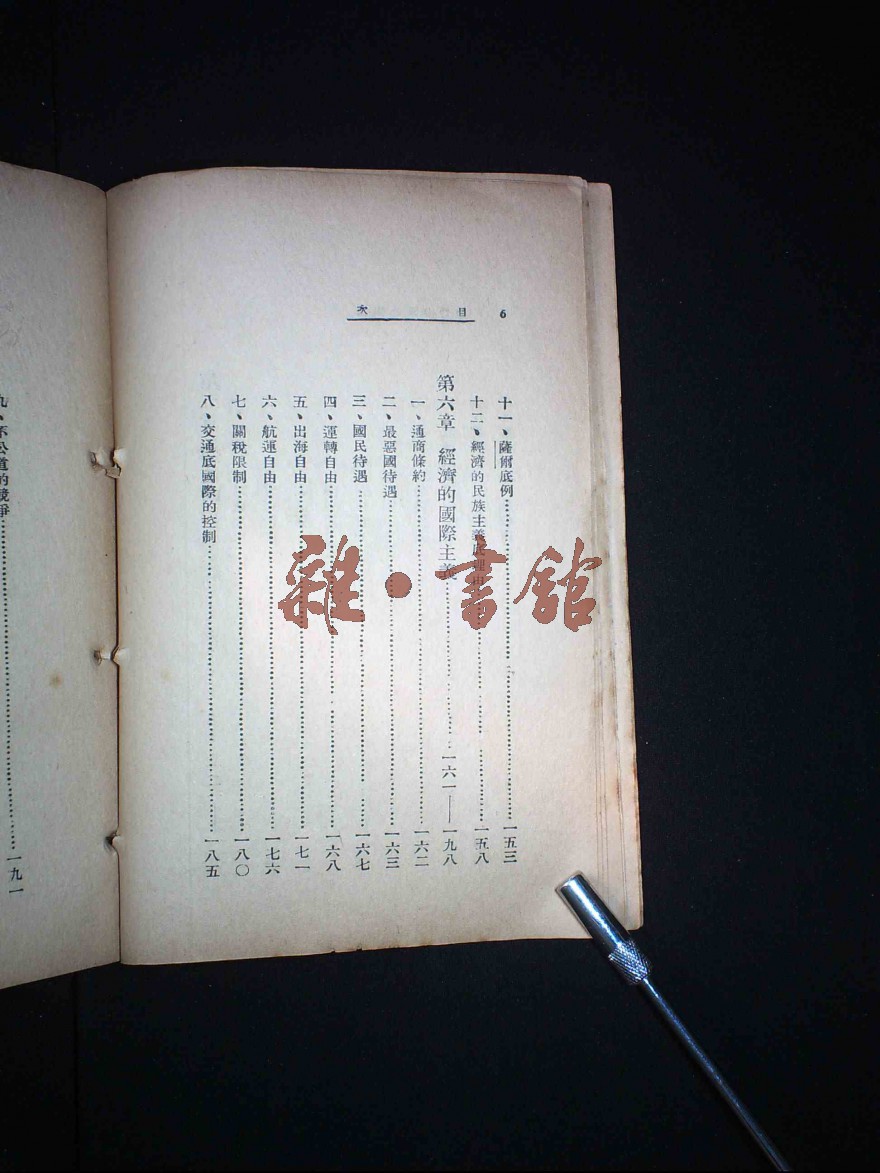 6 目次
十一、薩爾底例……一五三
十二、經濟的民族主義底理由……一五八
第六章 經濟的國際主義……一六一——一九八
一、通商條約……一六二
二、最惡國待遇……一六三
三、國民待遇……一六七
四、運轉自由……一六八
五、出海自由……一七一
六、航運自由……一七六
七、關稅限制……一八〇
八、交通底國際的控制……一八五
九、不公道的競爭……一九一
雜·書館